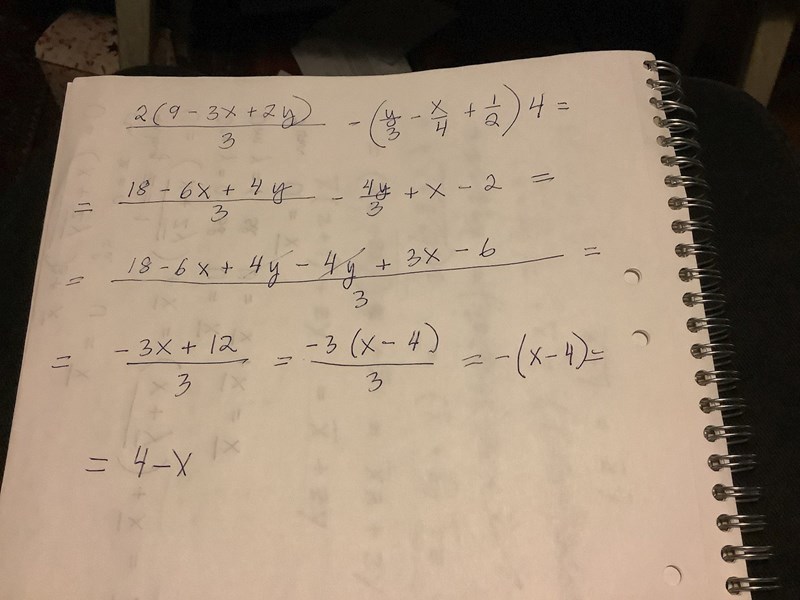 2(9 - 3x + 2y)/3 - (y/3 - x/4 + 1/2) 4 =
= 18 - 6x + 4y/3 - 4y/3 + x - 2 =
= 18 - 6x + 4y - 4y + 3x - 6/3 =
= -3x + 12/3 = -3(x - 4)/3 = -(x - 4) =
= 4 - x